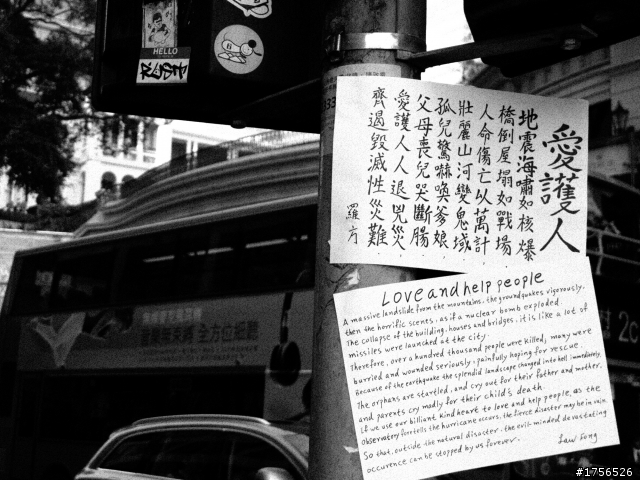 HELLO
愛護人
地震海嘯如核爆
橋倒屋塌如戰場
人命傷亡以萬計
壯麗山河變鬼域
孤兒驚嚇喚爹娘
父母喪兒哭斷腸
愛護人人退兇災
齊遏毀滅性災難
羅方
Love and help people
A massive landslide from the mountains, the ground quakes vigorously,
then the horrific scenes, as if a nuclear bomb exploded.
The collapse of the building, houses and bridges, it is like a lot of
missiles were launched at the city.
Therefore, over a hundred thousand people were killed, many were
burried and wounded seriously, painfully hoping for rescue.
Because of the earthquake the splendid landscape changed into hell immediately,
The orphans are startled, and cry out for their father and mother,
and parents cry madly for their child's death.
If we use our brilliant kind heart to love and help people, as the
Observatory foretells the hurricane occurs, the fierce disaster may be in vain.
So that, outside the natural disaster, the evil-minded devastating
occurence can be stopped by us forever.
Law Fong
全方位
#1756526